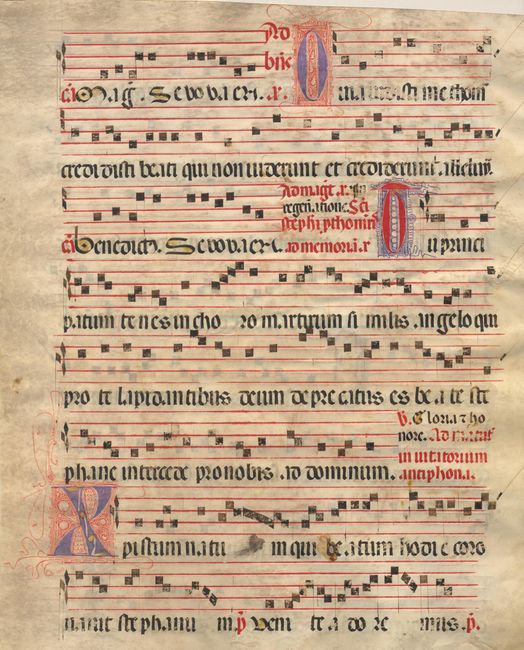 Ad
bn̄c
cū Mag̃. Seuouaeu. a. Quia uidisti me thomā
credidisti beati qui non uiderunt et crediderunt
Ad magt. a. In
regeneratione. Sci
ad memoriā. a
benedict. Seuouaeu. Qui princi
patum tenes in cho ro martirum si milis angelo qui
pro te lapidantibus deum deprecatus es be a te ste
V. Gloria et ho
nore. Ad matut
inuitatorium
antiphona.
phane intercede pro nobis ad dominum.
Xpistum natu m qui be atum hodie coro
nauit stephanu m. p̄ Veni te a do re mus. p̄.